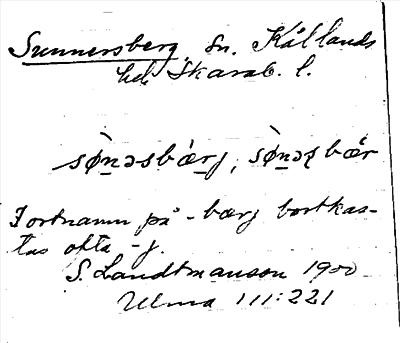 Sunnersberg sn. Kållands
hd Skarab. l.
sø̀n̲əsbær̲j, sø̀n̲əʂbær
I ortnamn på -bærj bortkas-
tas ofta -j.
S. Landtmanson 1900
Ulma 111:221